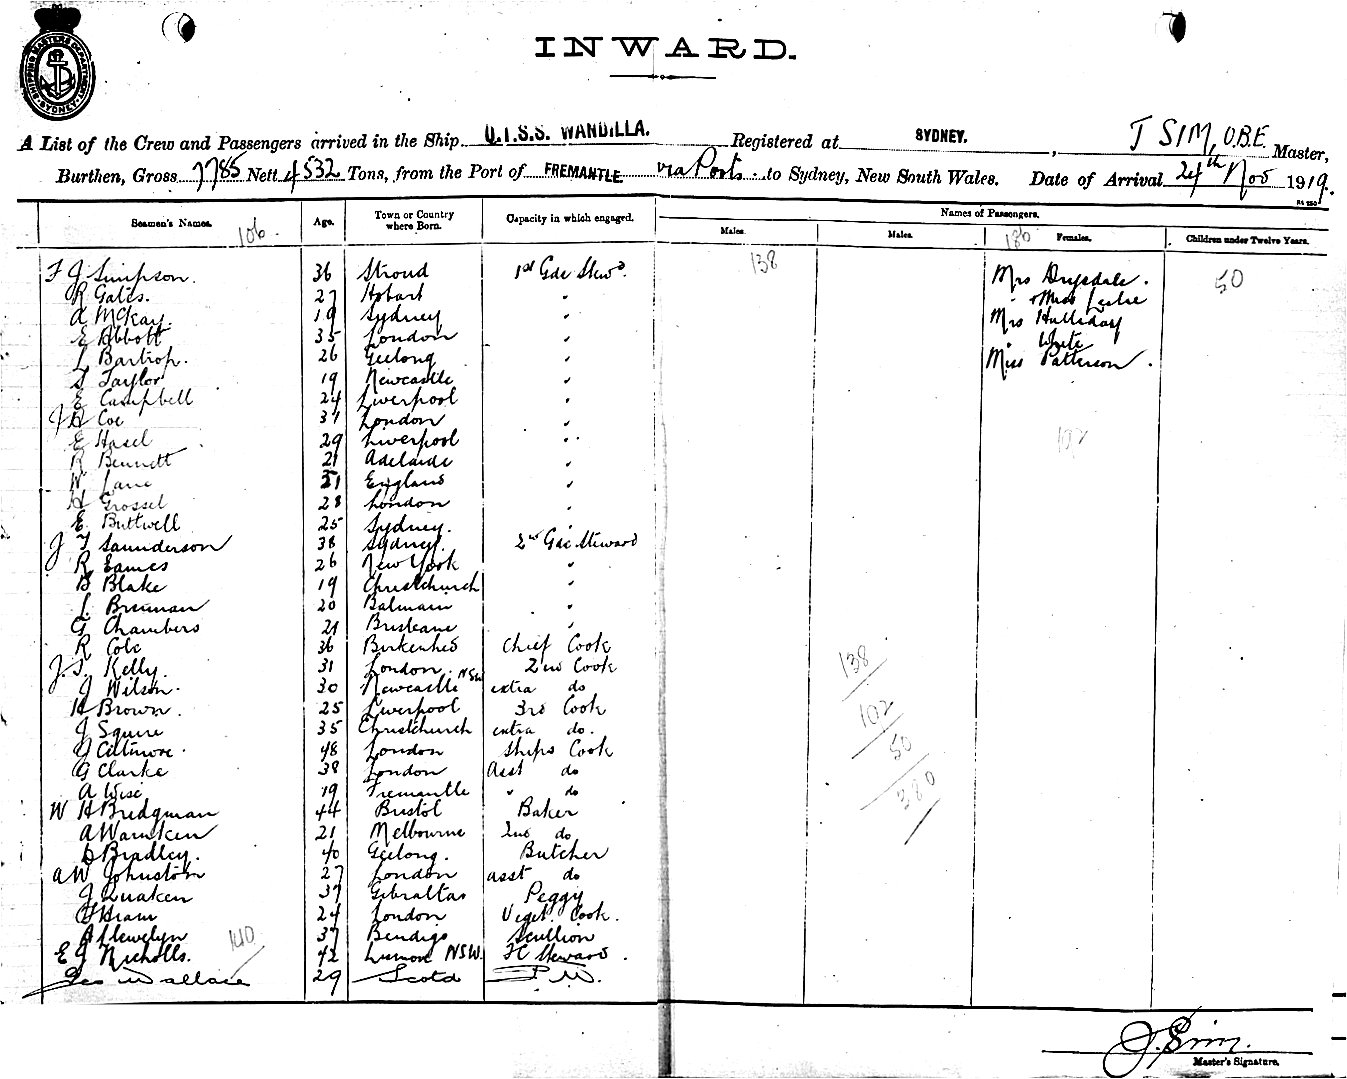 SHIPPING MASTERS DEPARTMENT SYDNEY
INWARD.
A List of the Crew and Passengers arrived in the Ship Q.T.S.S. WANDILLA. Registered at SYDNEY. , J SIM, O.B.E. Master,
Burthen, Gross 7785 Nett 4532 Tons, from the Port of FREMANTLE via Ports to Sydney, New South Wales. Date of Arrival 24th Nov 1919.
Seamen's Names. 106. Age. Town or Country where Born. Capacity in which engaged. Names of Passengers.
Males. Males. Females. Children under Twelve Years.
138 50
F J Simpson. 36 Stroud 1st Gde Stewd. Mrs Drysdale.
R Gates. 27 Hobart " " Miss Leslie
A McKay. 19 Sydney " Mrs Halliday
E Abbott 35 London " " White
L Bartrop. 26 Geelong " Miss Patterson.
S Taylor 19 Newcastle "
E Campbell 24 Liverpool "
J H Coe 37 London "
E Hasel 29 Liverpool " 102
R Bennett 21 Adelaide "
W Lane 21 England "
H Grossel 28 London "
E Buttwell 25 Sydney. "
J T Saunderson 38 Sydney. 2nd Gde Steward
R Eames 26 New York "
B Blake 19 Christchurch "
J. Brennan 20 Balmain "
G Chambers 21 Brisbane "
R Cole 36 Birkenhed Chief Cook
J. T. Kelly. 31 London. 2nd Cook 138
J Wilson. 30 Newcastle NSW extra do
H Brown. 25 Liverpool 3rd Cook 102
J Squire 35 Christchurch extra do.
48 London Ships Cook 50
G Clarke 38 London Asst do
A Wise 19 Fremantle " do
W H Bridgman 44 Bristol Baker
A Warnken 21 Melbourne 2nd do
D Bradley. 40 Geelong. Butcher
A W Johnston 27 London asst do
J Quaken 37 Gibraltar Peggy
Hiram 24 London Veget. Cook.
A Llewelyn 37 Bendigo Scullion
E J Nicholls. 140 42 Lismore NSW. FC Steward.
Geo Wallace 29 Scotd P.W.
J. Sim.
Master's Signature.